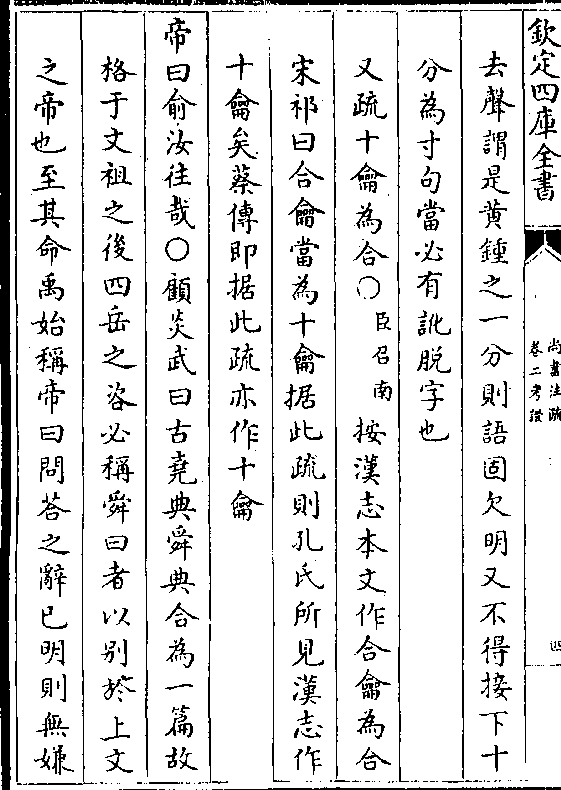 欽定四庫全書
尚書注疏
卷二考證
四
去聲謂是黄鍾之一分則語固欠明又不得接下十
分為寸句當必有訛脱字也
又疏十龠為合○臣召南按漢志本文作合龠為合
宋祁曰合龠當為十龠据此疏則孔氏所見漢志作
十龠矣蔡傳即据此疏亦作十龠
帝曰俞汝往哉○顧炎武曰古堯典舜典合為一篇故
格于文祖之後四岳之咨必稱舜曰者以别於上文
之帝也至其命禹始稱帝曰問荅之辭已明則無嫌